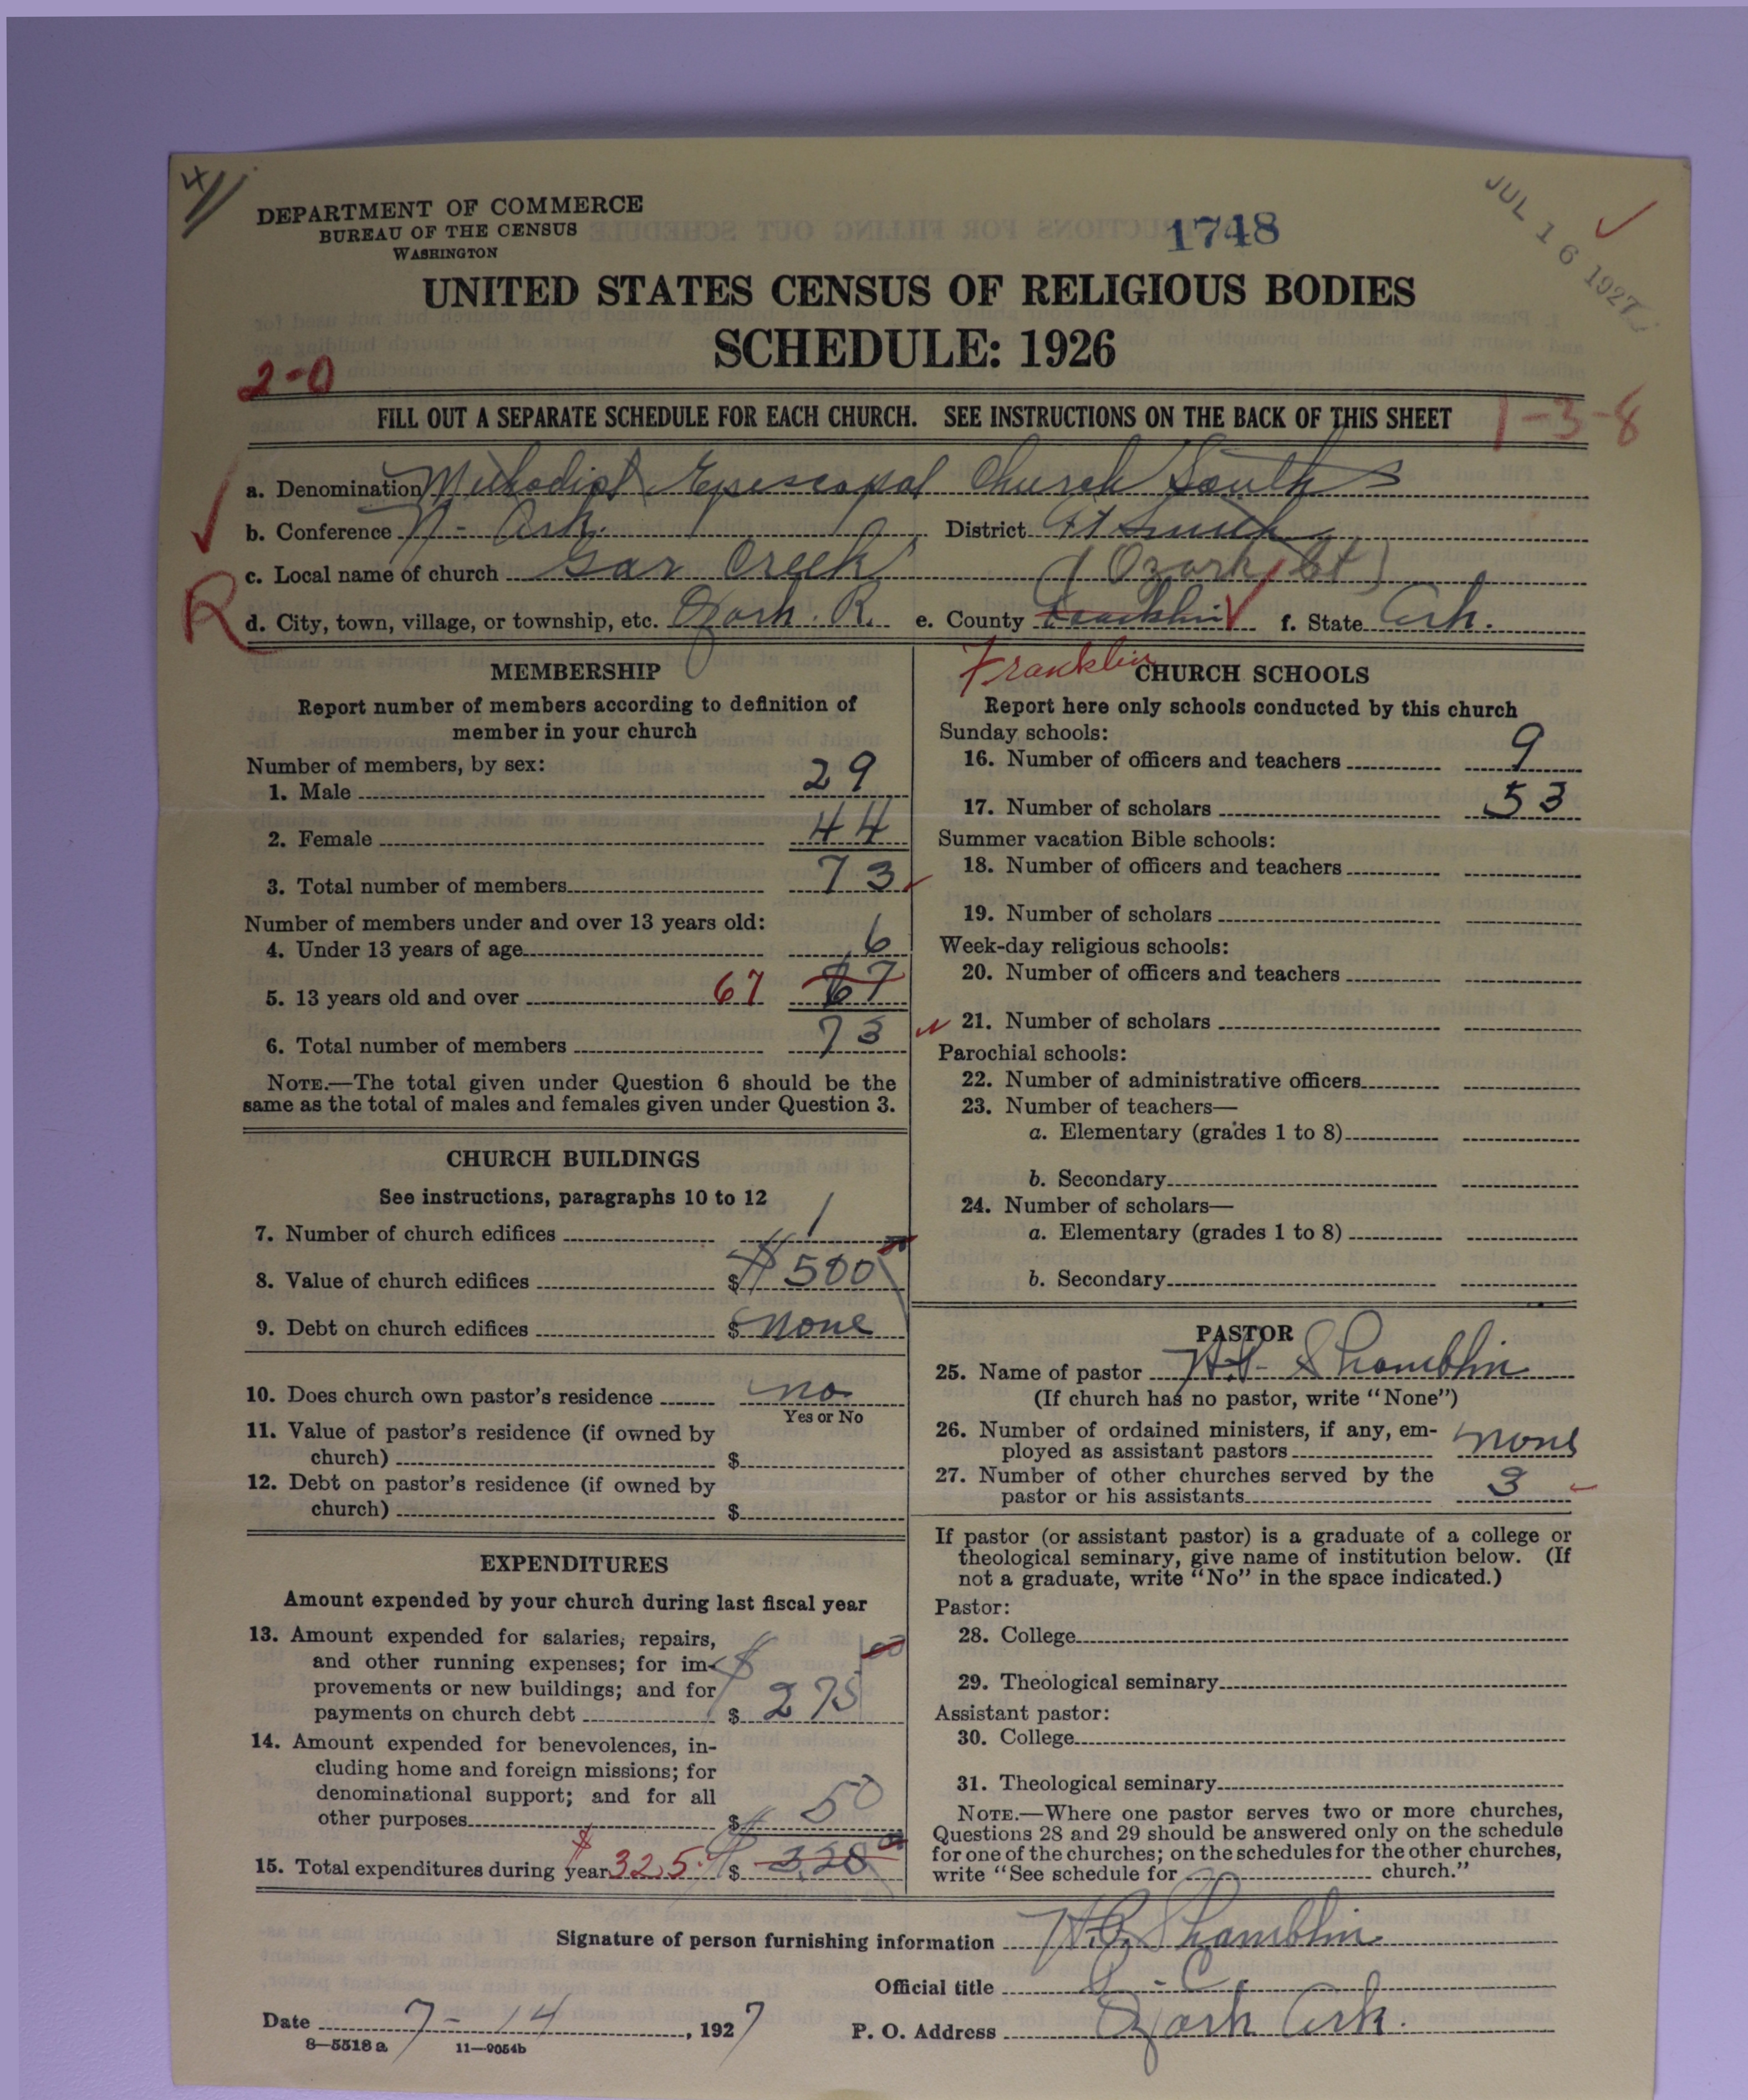 4
DEPARTMENT OF COMMERCE
BUREAU OF THE CENSUS
WASHINGTON
1748
JUL 16 1927
UNITED STATES CENSUS OF RELIGIOUS BODIES
SCHEDULE: 1926
2-0
FILL OUT A SEPARATE SCHEDULE FOR EACH CHURCH. SEE INSTRUCTIONS ON THE BACK OF THIS SHEET
1-3-8
a. Denomination Methodist Episcopal Church South
b. Conference N- Ark. District Ft Smith
c. Local name of church Gar Creek (Ozark Ct)
R
d. City, town, village, or township, etc. Ozark. R. e. County Franklin f. State Ark.
Franklin
MEMBERSHIP
Report number of members according to definition of
member in your church
Number of members, by sex:
1. Male 29
2. Female 44
3. Total number of members 73
Number of members under and over 13 years old:
4. Under 13 years of age 6
5. 13 years old and over 67 67
6. Total number of members 73
NOTE.—The total given under Question 6 should be the
same as the total of males and females given under Question 3.
CHURCH BUILDINGS
See instructions, paragraphs 10 to 12
7. Number of church edifices 1
8. Value of church edifices $ $500
9. Debt on church edifices $ none
10. Does church own pastor's residence no
Yes or No
11. Value of pastor's residence (if owned by
church) $
12. Debt on pastor's residence (if owned by
church) $
EXPENDITURES
Amount expended by your church during last fiscal year
13. Amount expended for salaries, repairs,
and other running expenses; for im-
provements or new buildings; and for
payments on church debt $ $275 00
14. Amount expended for benevolences, in-
cluding home and foreign missions; for
denominational support; and for all
other purposes $ 50
15. Total expenditures during year $325. $ 328
CHURCH SCHOOLS
Report here only schools conducted by this church
Sunday schools:
16. Number of officers and teachers 9
17. Number of scholars 53
Summer vacation Bible schools:
18. Number of officers and teachers
19. Number of scholars
Week-day religious schools:
20. Number of officers and teachers
21. Number of scholars
Parochial schools:
22. Number of administrative officers
23. Number of teachers—
a. Elementary (grades 1 to 8)
b. Secondary
24. Number of scholars—
a. Elementary (grades 1 to 8)
b. Secondary
PASTOR
25. Name of pastor Shamblin
(If church has no pastor, write "None")
26. Number of ordained ministers, if any, em-
ployed as assistant pastors none
27. Number of other churches served by the
pastor or his assistants 3
If pastor (or assistant pastor) is a graduate of a college or
theological seminary, give name of institution below. (If
not a graduate, write "No" in the space indicated.)
Pastor:
28. College
29. Theological seminary
Assistant pastor:
30. College
31. Theological seminary
NOTE.—Where one pastor serves two or more churches,
Questions 28 and 29 should be answered only on the schedule
for one of the churches; on the schedules for the other churches,
write "See schedule for church."
Signature of person furnishing information Shamblin
Official title P. C.
Date 7-14, 1927 P. O. Address Ozark Ark.
8—5518a 11—9054b